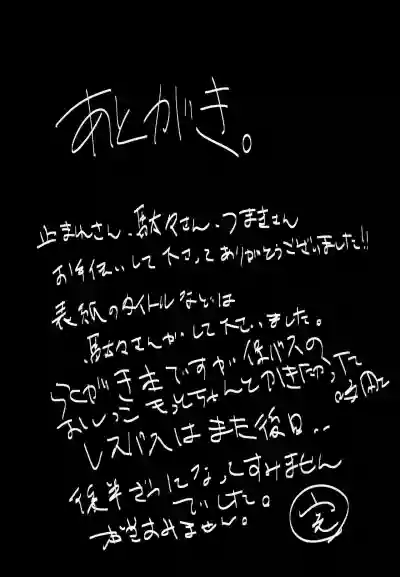 あとがき。
止まれさん、駄々さん、つまきさん
お手伝いして下さってありがとうございました!!
表紙のタイトルなどは
駄々さんがして下さいました。
らくがき本ですが 保バスの
おしっこ もっとちゃんとかきたかった
時間に
レスバスはまた後日..
後半ざつになってすみません
でした。
本当すみません。
完